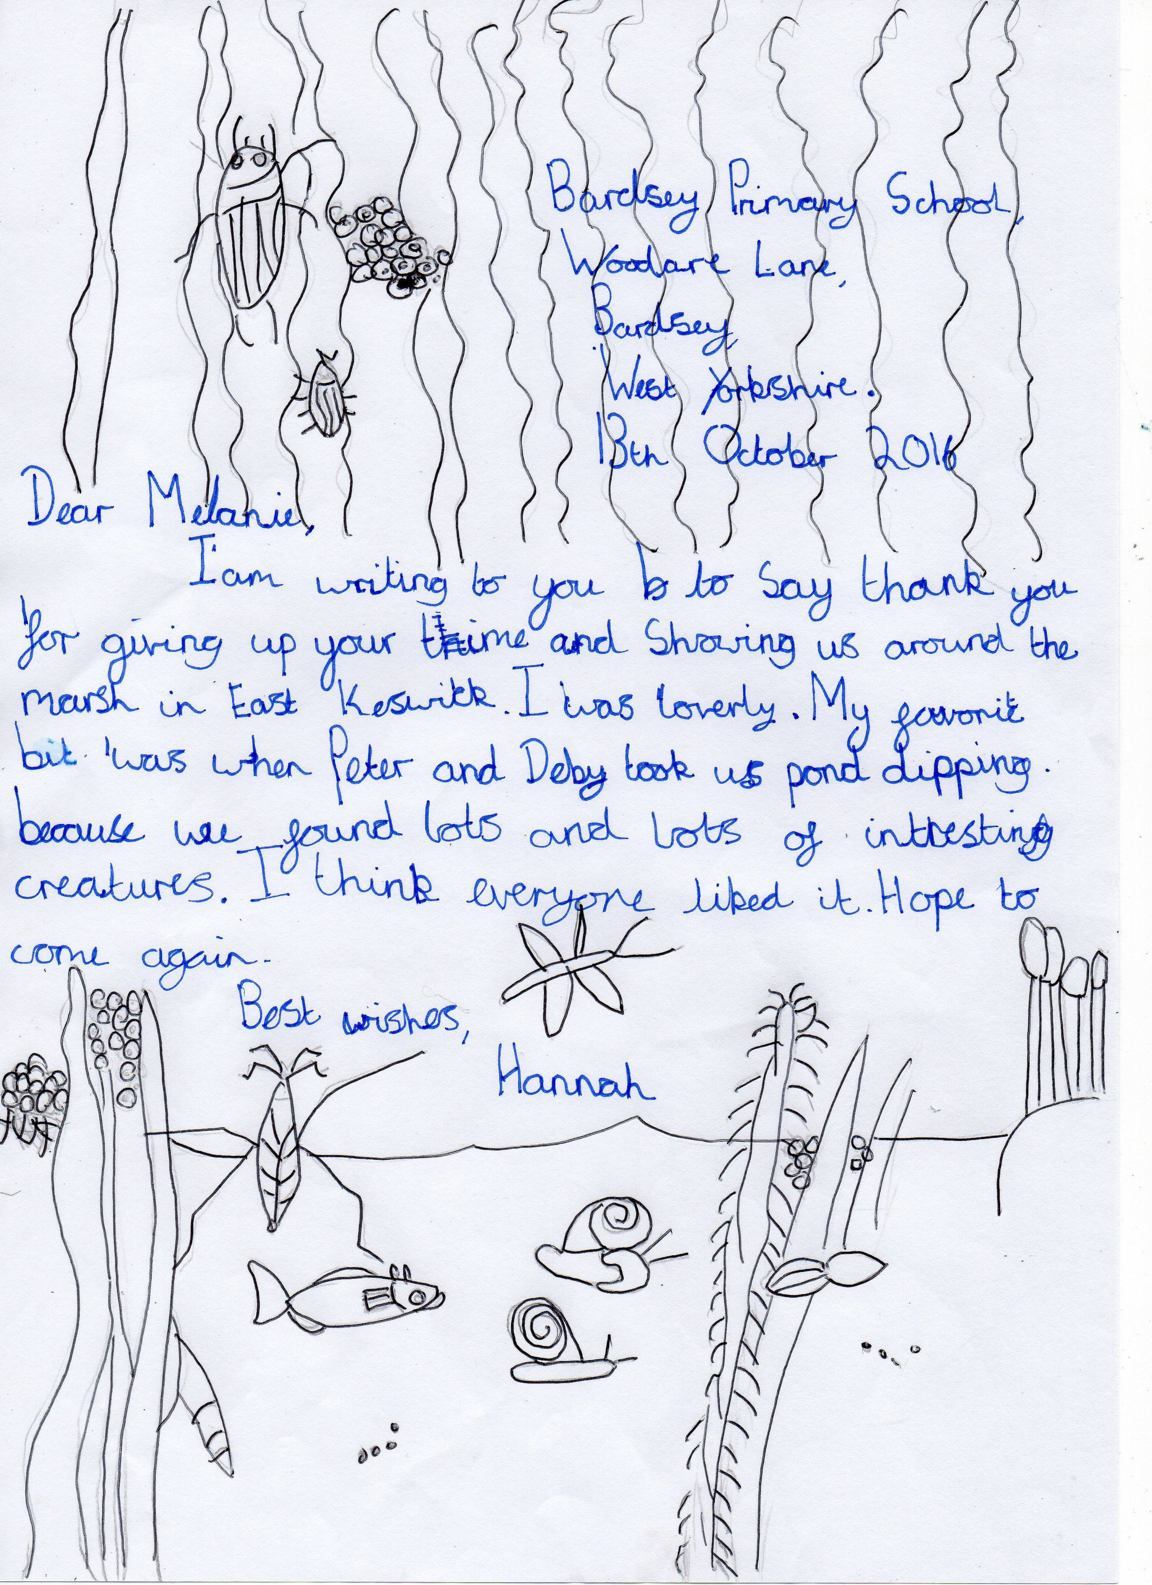 Bardsey Primary School,
Woodacre Lane,
Bardsey,
West Yorkshire.
13th October 2016
Dear Melanie,
I am writing to you to say thank you
for giving up your time and Showing us around the
marsh in East Keswick. I was loverly. My favorit
bit was when Peter and Deby took us pond dipping.
because we found lots and lots of inttresting
creatures. I think everyone liked it. Hope to
come again.
Best wishes,
Hannah